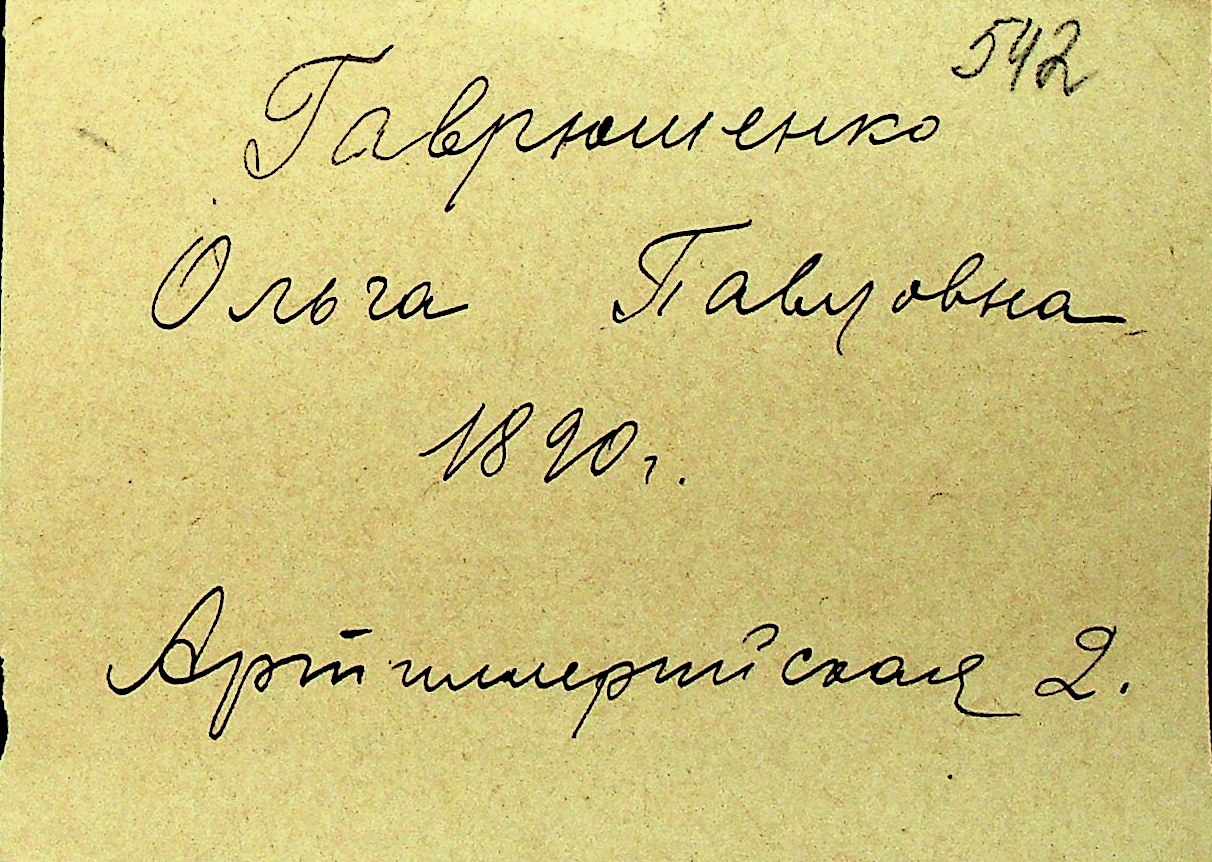 542
Гаврюшенко
Ольга Павловна
1890 г.
Артиллерийская 2.